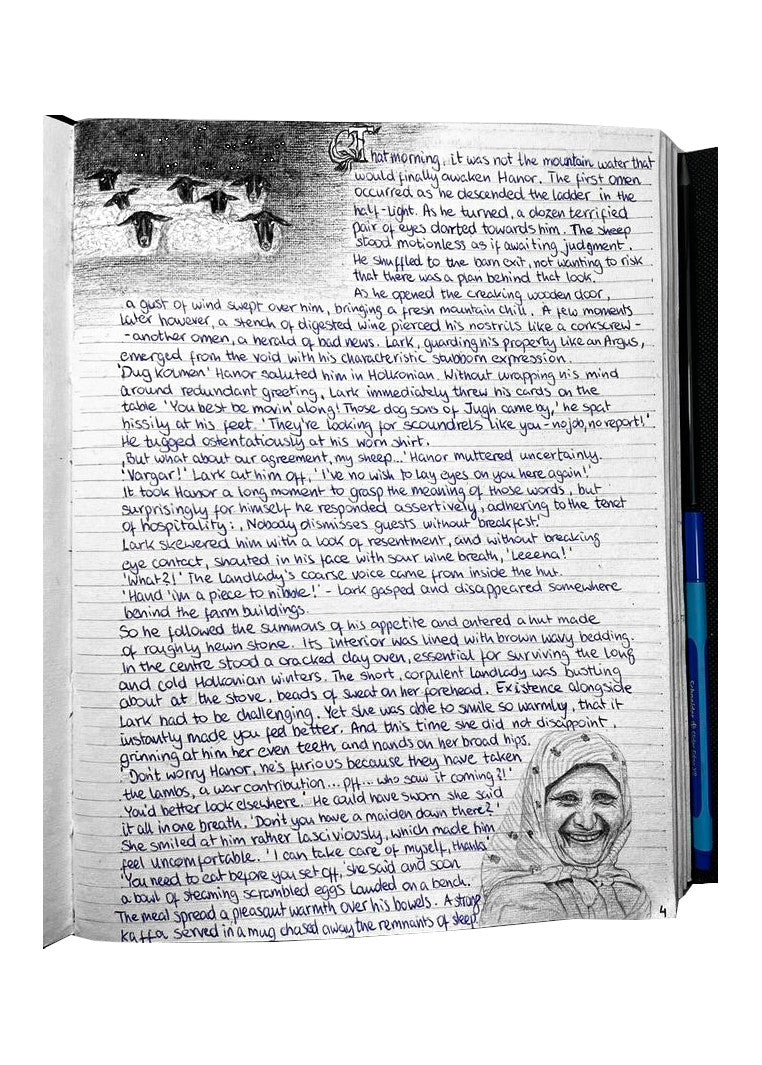 That morning, it was not the mountain water that
would finally awaken Hanor. The first omen
occurred as he descended the ladder in the
half-light. As he turned, a dozen terrified
pair of eyes darted towards him. The sheep
stood motionless as if awaiting judgment.
He shuffled to the barn exit, not wanting to risk
that there was a plan behind that look.
As he opened the creaking wooden door,
a gust of wind swept over him, bringing a fresh mountain chill. A few moments
later however, a stench of digested wine pierced his nostrils like a corkscrew -
- another omen, a herald of bad news. Lark, guarding his property like an Argus,
emerged from the void with his characteristic stubborn expression.
'Dug kolmen' Hanor saluted him in Holkonian. Without wrapping his mind
around redundant greeting, Lark immediately threw his cards on the
table 'You best be movin' along! Those dog sons of Jugh came by,' he spat
hissily at his feet. 'They're looking for scoundrels like you - no job, no report!'
He tugged ostentatiously at his worn shirt.
'But what about our agreement, my sheep...' Hanor muttered uncertainly.
'Vargar!' Lark cut him off, 'I've no wish to lay eyes on you here again!'
It took Hanor a long moment to grasp the meaning of those words, but
surprisingly for himself he responded assertively, adhering to the tenet
of hospitality: 'Nobody dismisses guests without breakfast.'
Lark skewered him with a look of resentment, and without breaking
eye contact, shouted in his face with sour wine breath, 'Leeena!'
'What?!' The landlady's coarse voice came from inside the hut.
'Hand 'im a piece to nibble!' - Lark gasped and disappeared somewhere
behind the farm buildings.
So he followed the summons of his appetite and entered a hut made
of roughly hewn stone. Its interior was lined with brown wavy bedding.
In the centre stood a cracked clay oven, essential for surviving the long
and cold Holkonian winters. The short, corpulent landlady was bustling
about at the stove, beads of sweat on her forehead. Existence alongside
Lark had to be challenging. Yet she was able to smile so warmly, that it
instantly made you feel better. And this time she did not disappoint,
grinning at him her even teeth and hands on her broad hips.
'Don't worry Hanor, he's furious because they have taken
the lambs, a war contribution... pff... who saw it coming?!'
You'd better look elsewhere.' He could have sworn she said
it all in one breath. 'Don't you have a maiden down there?'
She smiled at him rather lasciviously, which made him
feel uncomfortable. 'I can take care of myself, thanks'
'You need to eat before you set off,' she said and soon
a bowl of steaming scrambled eggs landed on a bench.
The meal spread a pleasant warmth over his bowels. A strong
kaffa served in a mug chased away the remnants of sleep
4